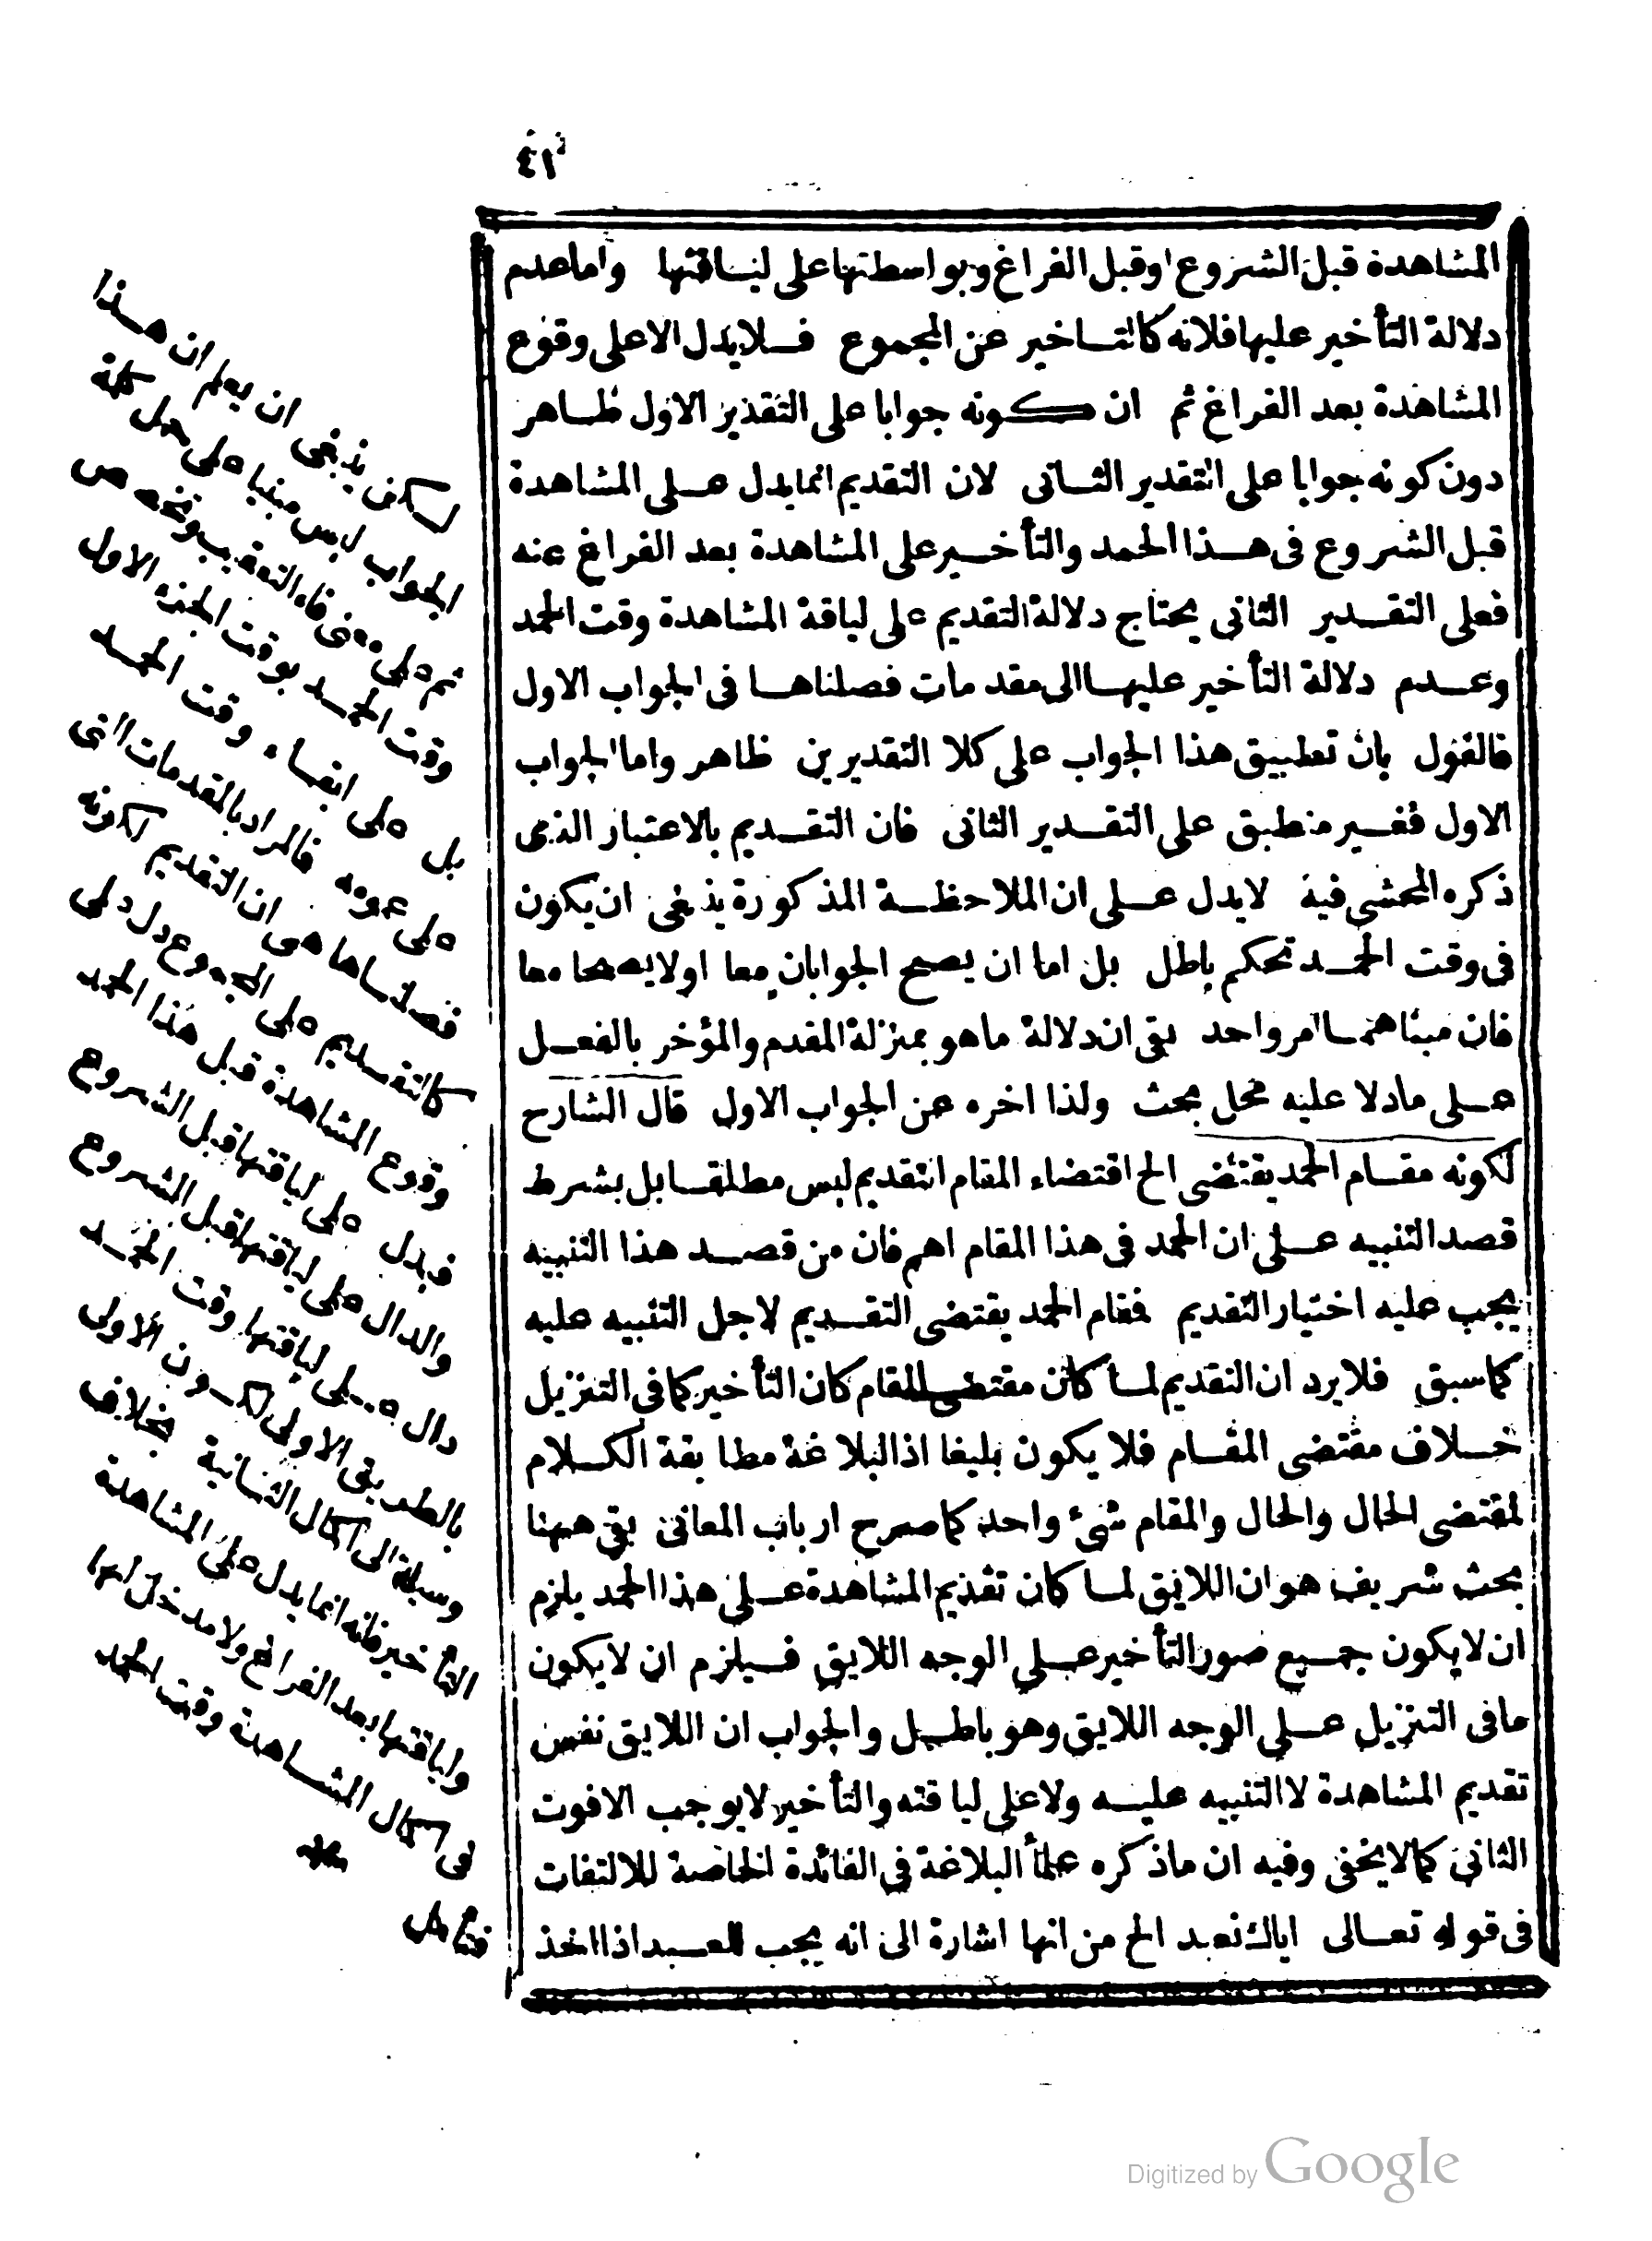 ٤١
المشاهدة قبل الشروع او قبل الفراغ وبواسطتها على لياقتها واما عدم
دلالة التأخير عليها فلانه كالتاخير عن المجموع فلا يدل الا على وقوع
المشاهدة بعد الفراغ ثم ان كونه جوابا على التقدير الاول ظاهر
دون كونه جوابا على التقدير الثانى لان التقديم انما يدل على المشاهدة
قبل الشروع فى هذا الحمد والتأخير على المشاهدة بعد الفراغ عنه
فعلى التقدير الثانى يحتاج دلالة التقديم على لياقة المشاهدة وقت الحمد
وعدم دلالة التأخير عليها الى مقدمات فصلناها فى الجواب الاول
فالقول بان تطبيق هذا الجواب على كلا التقديرين ظاهر واما الجواب
الاول فغير منطبق على التقدير الثانى فان التقديم بالاعتبار الذى
ذكره المحشى فيه لا يدل على ان الملاحظة المذكورة ينبغى ان يكون
فى وقت الحمد تحكم باطل بل اما ان يصح الجوابان معا او لا يصحا معا
فان مبناهما امر واحد بقى ان دلالة ما هو بمنزلة المقدم والمؤخر بالفعل
على ما دلا عليه محل بحث ولذا اخره عن الجواب الاول قال الشارح
لكونه مقام الحمد يقتضى الخ اقتضاء المقام التقديم ليس مطلقا بل بشرط
قصد التنبيه على ان الحمد فى هذا المقام اهم فان من قصد هذا التنبيه
يجب عليه اختيار التقديم فمقام الحمد يقتضى التقديم لاجل التنبيه عليه
كما سبق فلا يرد ان التقديم لما كان مقتضى المقام كان التأخير كما فى التنزيل
خلاف مقتضى المقام فلا يكون بليغا اذ البلاغة مطابقة الكلام
لمقتضى الحال والحال والمقام شئ واحد كما صرح ارباب المعانى بقى ههنا
بحث شريف هو ان اللايق لما كان تقديم المشاهدة على هذا الحمد يلزم
ان لا يكون جميع صور التأخير على الوجه اللايق فيلزم ان لا يكون
ما فى التنزيل على الوجه اللايق وهو باطل والجواب ان اللايق نفس
تقديم المشاهدة لا التنبيه عليه ولا على لياقته والتأخير لا يوجب الا فوت
الثانى كما لا يخفى وفيه ان ما ذكره علماء البلاغة فى الفائدة الخاصة للالتفات
فى قوله تعالى اياك نعبد الخ من انها اشارة الى انه يجب للعبد اذا اخذ
لكن ينبغى ان يعلم ان هذا
الجواب ليس مبنيا على حمل كلة
ثم على معنى فاء التعقيب وتخصيص
وقت الحمد بوقت الجزء الاول
بل على ابقاء وقت الحمد
على عمومه فالمراد بالمقدمات التى
فصلناها هى ان التقديم لكونه
كالتقديم على المجموع دل على
وقوع المشاهدة قبل هذا الحمد
فيدل على لياقتها قبل الشروع
والدال على لياقتها قبل الشروع
دال على لياقتها وقت الحمد
بالطريق الاولى لكون الاولى
وسيلة الى اكمال الثانية بخلاف
التأخير فانه انما يدل على المشاهدة
ولياقتها بعد الفراغ ولا مدخل لها
فى اكمال المشاهدة وقت الحمد
فتأمل
منه
Digitized by Google